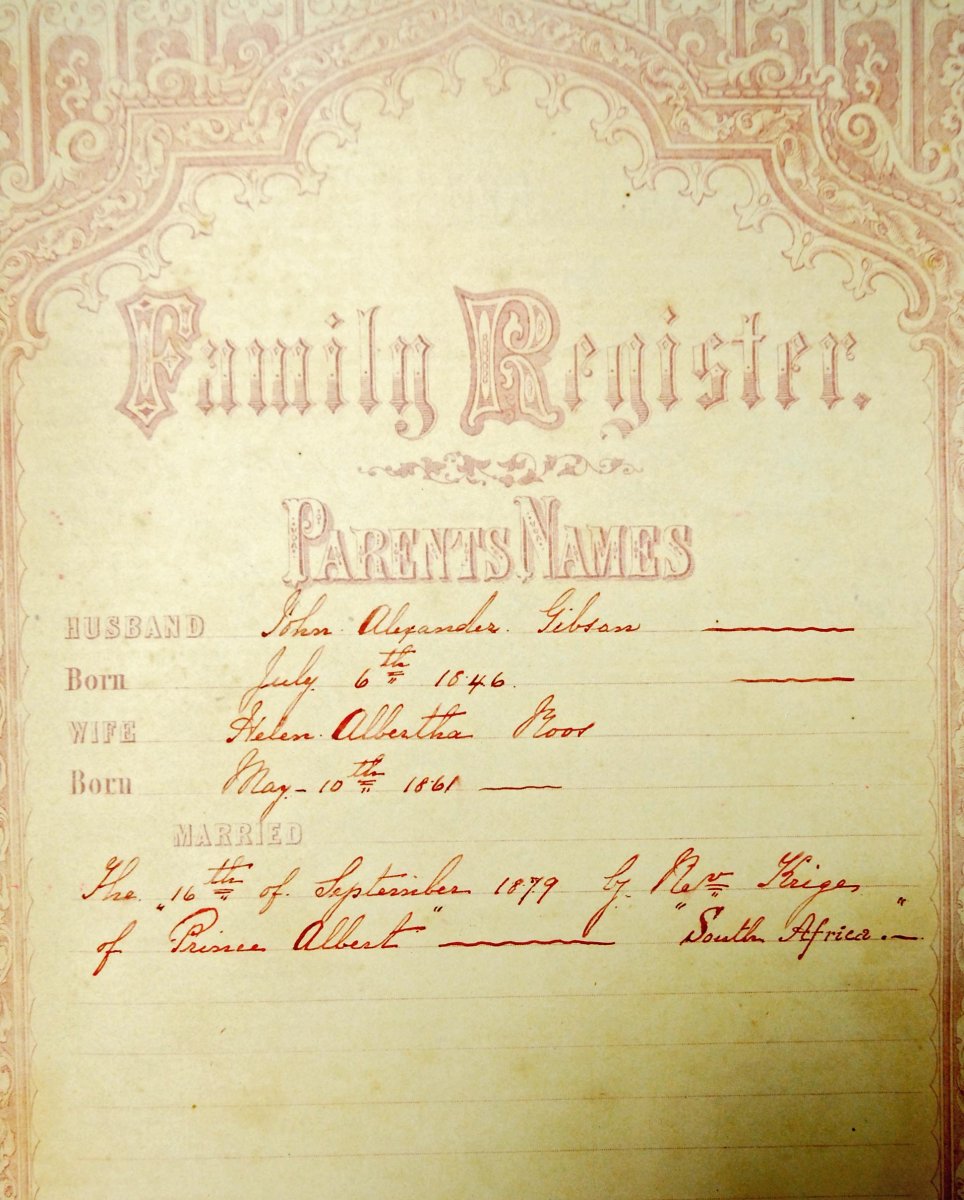 Family Register.
PARENTS NAMES
HUSBAND John Alexander Gibson
Born July 6th 1846.
WIFE Helen Albertha Roos
Born May - 10th 1861
MARRIED
The "16th of September 1879 by "Rev Krige"
of Prince Albert" South Africa.